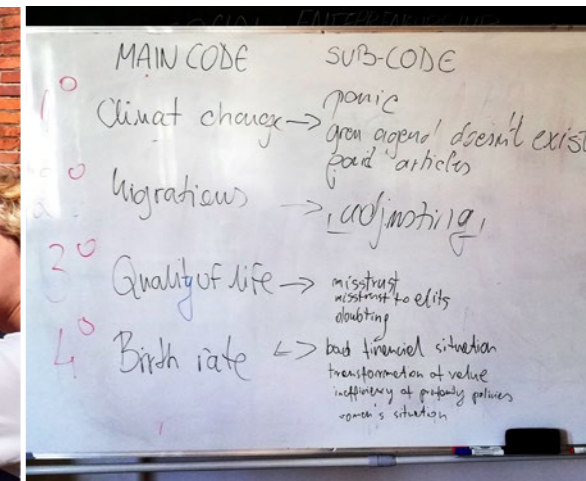 SOCIAL ENTREPRENEURSHIP
MAIN CODE SUB-CODE
1° Climat change → panic
green agend' doesn't exist
paid articles
° Migrations → "adjusting"
2° Quality of life → misstrust
misstrust to elits
doubting
4° Birth rate <-> bad financial situation
transformation of value
inefficiency of profamily policies
women's situation